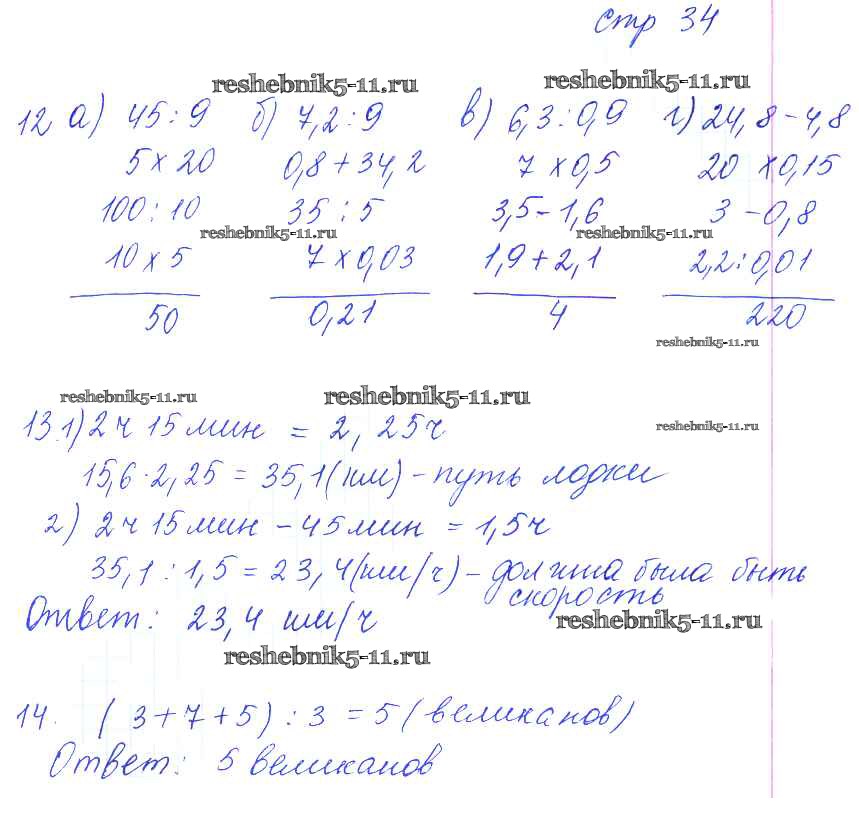 стр 34
reshebnik5-11.ru reshebnik5-11.ru
12 а) 45:9 б) 7,2:9 в) 6,3:0,9 г) 24,8-4,8
5×20 0,8+34,2 7×0,5 20×0,15
100:10 35:5 3,5-1,6 3-0,8
reshebnik5-11.ru reshebnik5-11.ru
10×5 7×0,03 1,9+2,1 2,2:0,01
50 0,21 4 220
reshebnik5-11.ru
reshebnik5-11.ru reshebnik5-11.ru
13.1) 2ч 15мин = 2,25ч
reshebnik5-11.ru
15,6·2,25 = 35,1(км) - путь лодки
2) 2ч 15мин - 45мин = 1,5ч
35,1:1,5 = 23,4(км/ч) - должна была быть
скорость
Ответ: 23,4 км/ч
reshebnik5-11.ru
reshebnik5-11.ru
14. (3+7+5):3 = 5 (великанов)
Ответ: 5 великанов